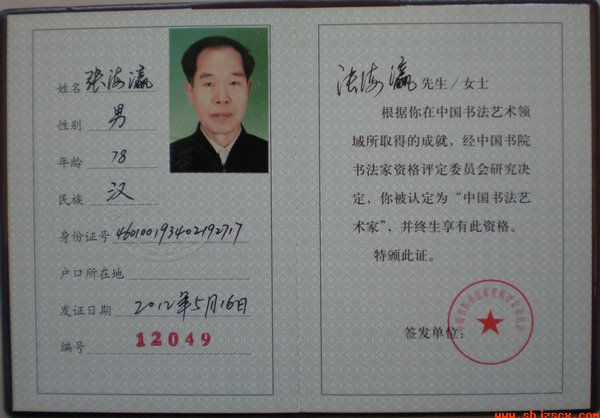 姓名 张海瀛
性别 男
年龄 78
民族 汉
身份证号 460100193402192717
户口所在地
发证日期 2012年5月16日
编号 12049
张海瀛 先生／女士
根据你在中国书法艺术领
域所取得的成就，经中国书院
书法家资格评定委员会研究决
定，你被认定为“中国书法艺
术家”，并终生享有此资格。
特颁此证。
签发单位：
中国书院书法家资格评定委员会
www.shjzscx.com